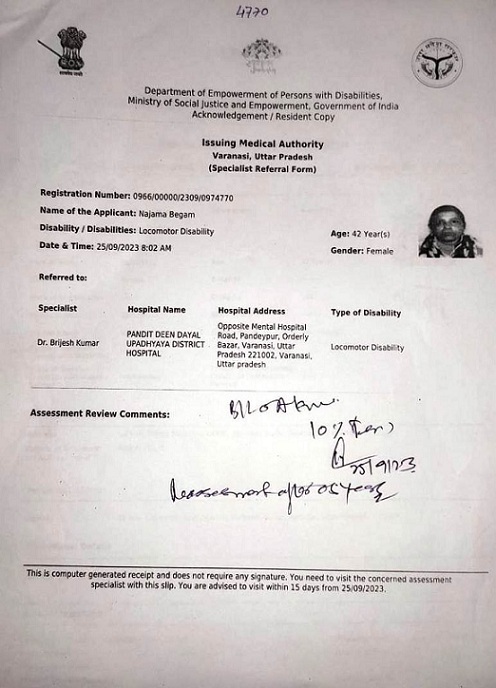 4770
Department of Empowerment of Persons with Disabilities,
Ministry of Social Justice and Empowerment, Government of India
Acknowledgement / Resident Copy
Issuing Medical Authority
Varanasi, Uttar Pradesh
(Specialist Referral Form)
Registration Number: 0966/00000/2309/0974770
Name of the Applicant: Najama Begam
Disability / Disabilities: Locomotor Disability
Date & Time: 25/09/2023 8:02 AM
Age: 42 Year(s)
Gender: Female
Referred to:
Specialist Hospital Name Hospital Address Type of Disability
Dr. Brijesh Kumar
PANDIT DEEN DAYAL
UPADHYAYA DISTRICT
HOSPITAL
Opposite Mental Hospital
Road, Pandeypur, Orderly
Bazar, Varanasi, Uttar
Pradesh 221002, Varanasi,
Uttar pradesh
Locomotor Disability
Assessment Review Comments:
B/L OA knee
10%
25/9/23
Reassessment after 05 years
This is computer generated receipt and does not require any signature. You need to visit the concerned assessment
specialist with this slip. You are advised to visit within 15 days from 25/09/2023.